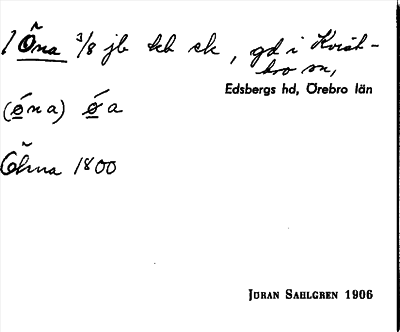 1 Õna 3/8 jb kch ek, gd i Kvist-
bro sn,
Edsbergs hd, Örebro län
(ǿna) ǿa
Õhna 1800
JÖRAN SAHLGREN 1906